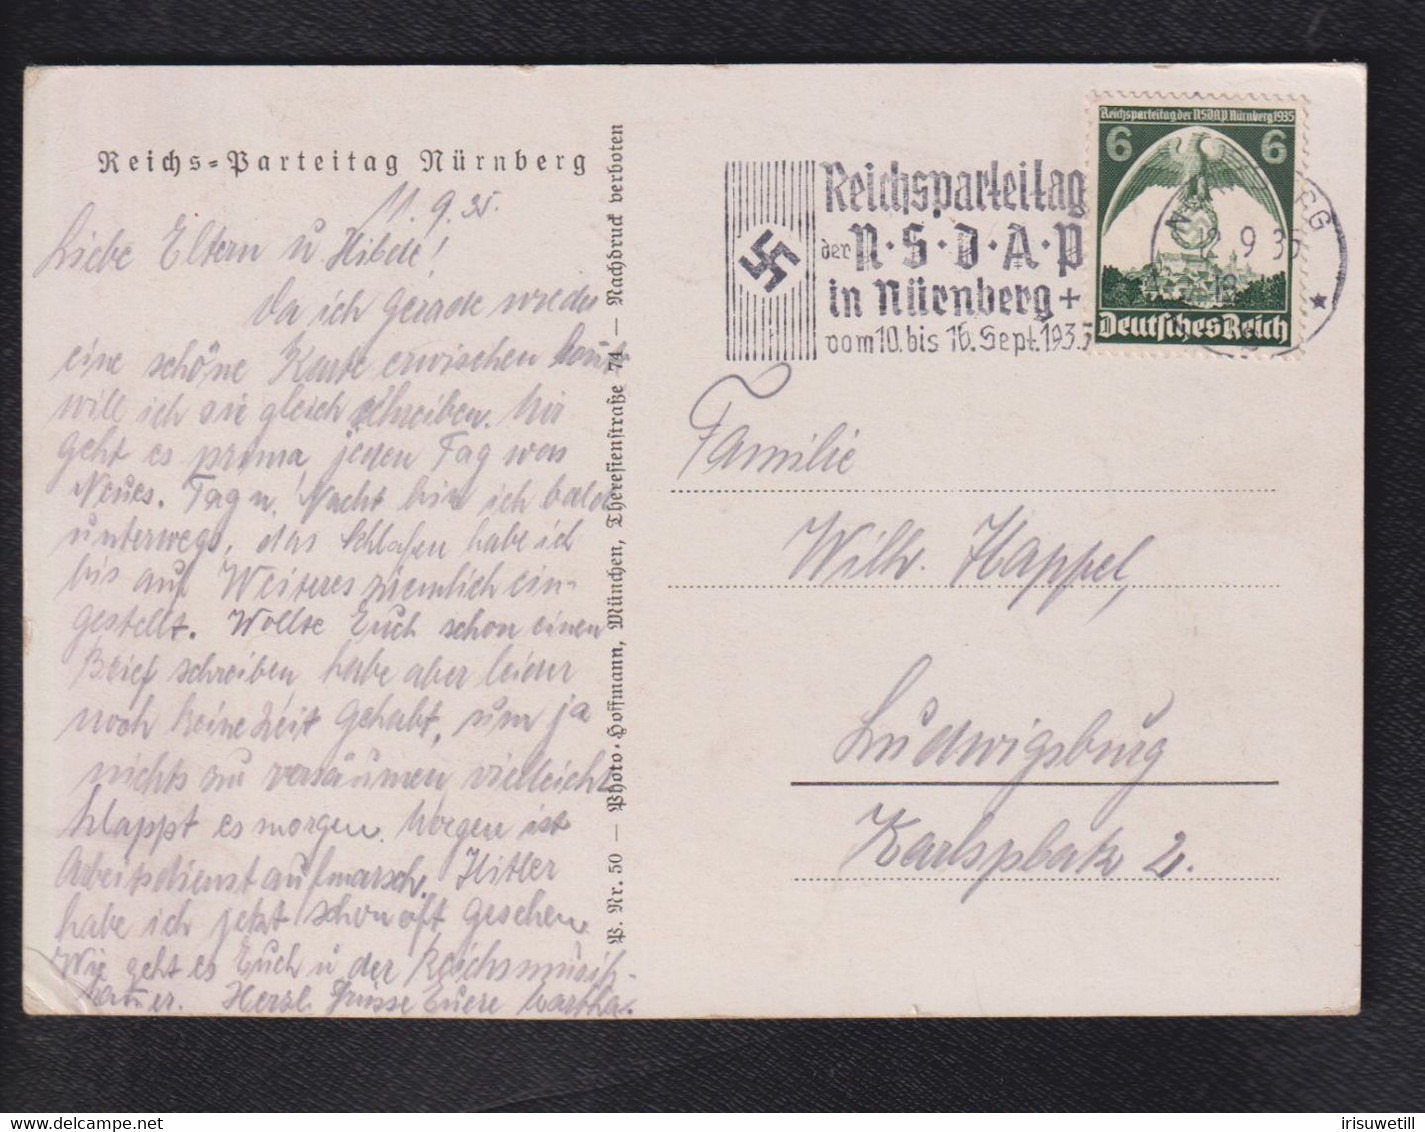 Reichs-Parteitag Nürnberg
11.9.35.
Liebe Eltern u Hilde!
Da ich gerade wieder
eine schöne Karte erwischen konnte
will ich sie gleich schreiben. Mir
geht es prima, jeden Tag was
Neues. Tag u. Nacht bin ich bald
unterwegs, das Schlafen habe ich
bis auf Weiteres ziemlich ein-
gestellt. Wollte Euch schon einen
Brief schreiben habe aber leider
noch keine Zeit gehabt, um ja
nichts zu versäumen, vielleicht
klappt es morgen. Morgen ist
Arbeitsdienstaufmarsch. Hitler
habe ich jetzt schon oft gesehen.
Wie geht es Euch u der Reichsmusik-
Herzl. Grüsse Euere Martha.
P. Nr. 50 — Photo-Hoffmann, München, Theresienstraße 74 — Nachdruck verboten
Reichsparteitag
der N·S·D·A·P
in Nürnberg +
vom 10. bis 16. Sept. 1935
Reichsparteitag der NSDAP Nürnberg 1935
6 6
Deutsches Reich
12 9 35
Familie
Wilh. Happel,
Ludwigsburg
Karlsplatz 2.
irisuwetill